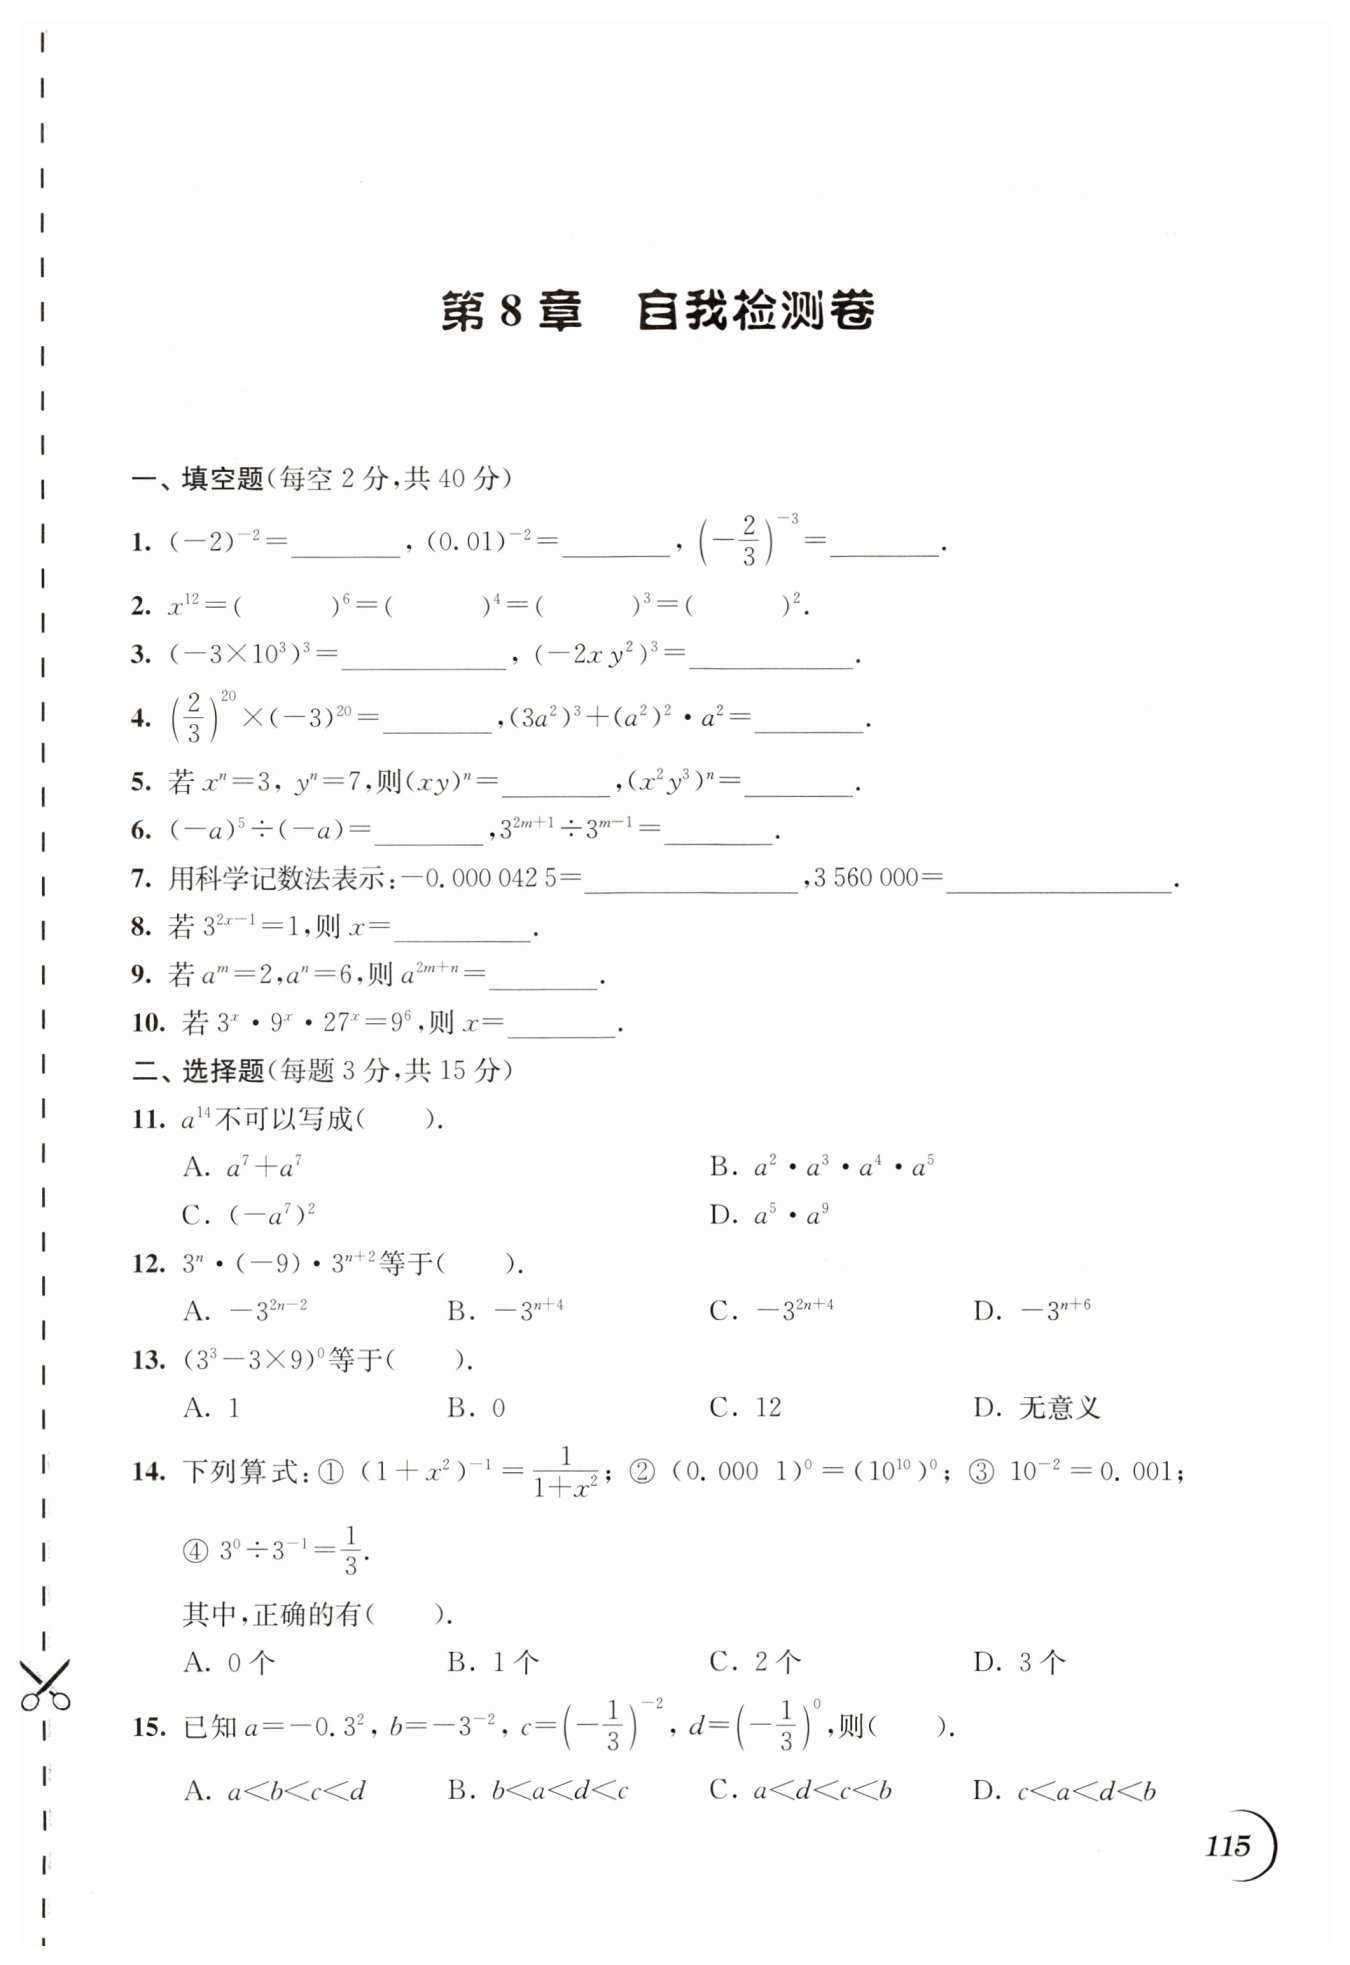 第 8 章　自我检测卷
一、填空题(每空 2 分,共 40 分)
1. (−2)⁻²=________, (0.01)⁻²=________, (−2/3)⁻³=________.
2. x¹²=(　　)⁶=(　　)⁴=(　　)³=(　　)².
3. (−3×10³)³=____________, (−2xy²)³=____________.
4. (2/3)²⁰×(−3)²⁰=________,(3a²)³+(a²)²·a²=________.
5. 若 xⁿ=3, yⁿ=7,则(xy)ⁿ=________,(x²y³)ⁿ=________.
6. (−a)⁵÷(−a)=________,3²ᵐ⁺¹÷3ᵐ⁻¹=________.
7. 用科学记数法表示:−0.000 042 5=________________,3 560 000=________________.
8. 若 3²ˣ⁻¹=1,则 x=__________.
9. 若 aᵐ=2,aⁿ=6,则 a²ᵐ⁺ⁿ=________.
10. 若 3ˣ·9ˣ·27ˣ=9⁶,则 x=________.
二、选择题(每题 3 分,共 15 分)
11. a¹⁴不可以写成(　　).
A. a⁷+a⁷　　B. a²·a³·a⁴·a⁵
C. (−a⁷)²　　D. a⁵·a⁹
12. 3ⁿ·(−9)·3ⁿ⁺²等于(　　).
A. −3²ⁿ⁻²　　B. −3ⁿ⁺⁴　　C. −3²ⁿ⁺⁴　　D. −3ⁿ⁺⁶
13. (3³−3×9)⁰等于(　　).
A. 1　　B. 0　　C. 12　　D. 无意义
14. 下列算式:① (1+x²)⁻¹=1/(1+x²); ② (0.000 1)⁰=(10¹⁰)⁰; ③ 10⁻²=0.001;
④ 3⁰÷3⁻¹=1/3.
其中,正确的有(　　).
A. 0 个　　B. 1 个　　C. 2 个　　D. 3 个
15. 已知 a=−0.3², b=−3⁻², c=(−1/3)⁻², d=(−1/3)⁰,则(　　).
A. a<b<c<d　　B. b<a<d<c　　C. a<d<c<b　　D. c<a<d<b
115